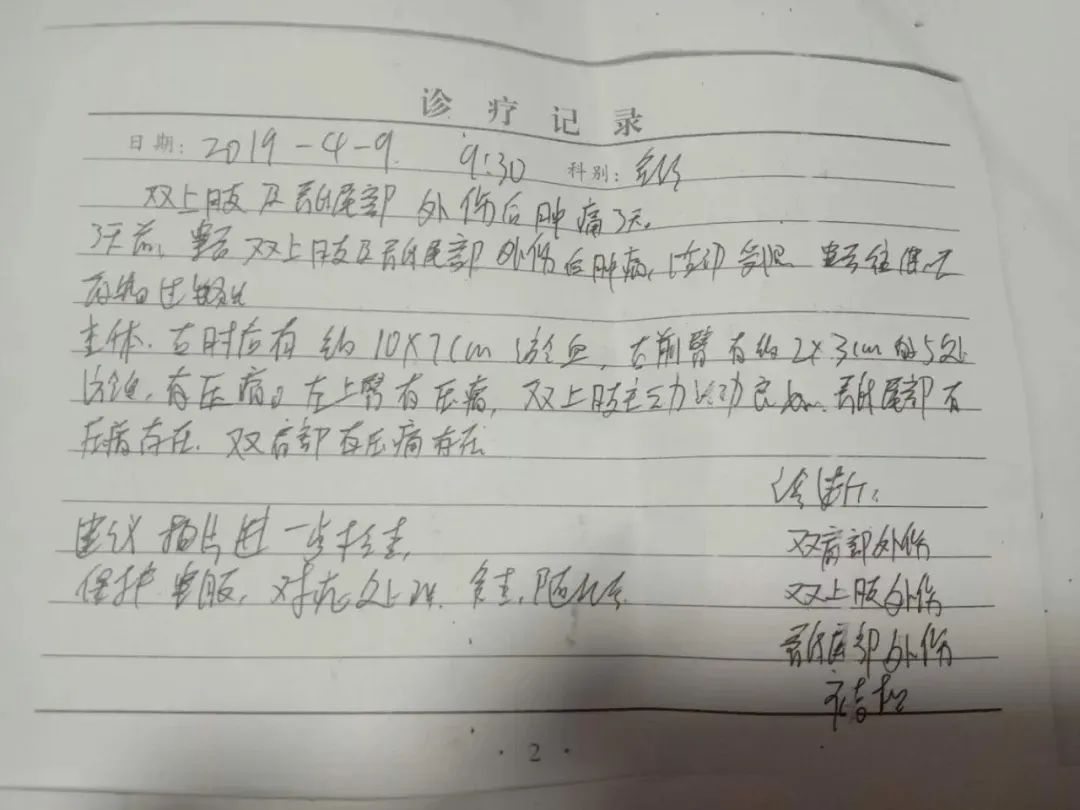 诊疗记录
日期: 2019-4-9. 9:30 科别:
双上肢及骶尾部外伤后肿痛3天。
3天前, 患者双上肢及骶尾部外伤后肿痛, 活动受限
查体. 右肘后有约10×7cm淤血, 右前臂有约2×3cm的5处
淤血, 有压痛。左上臂有压痛, 双上肢主动活动良好. 骶尾部有
压痛存在. 双肩部有压痛存在
诊断:
建议拍片进一步检查,
双肩部外伤
保护患肢, 对症处理. 复查. 随诊.
双上肢外伤
骶尾部外伤
·2·